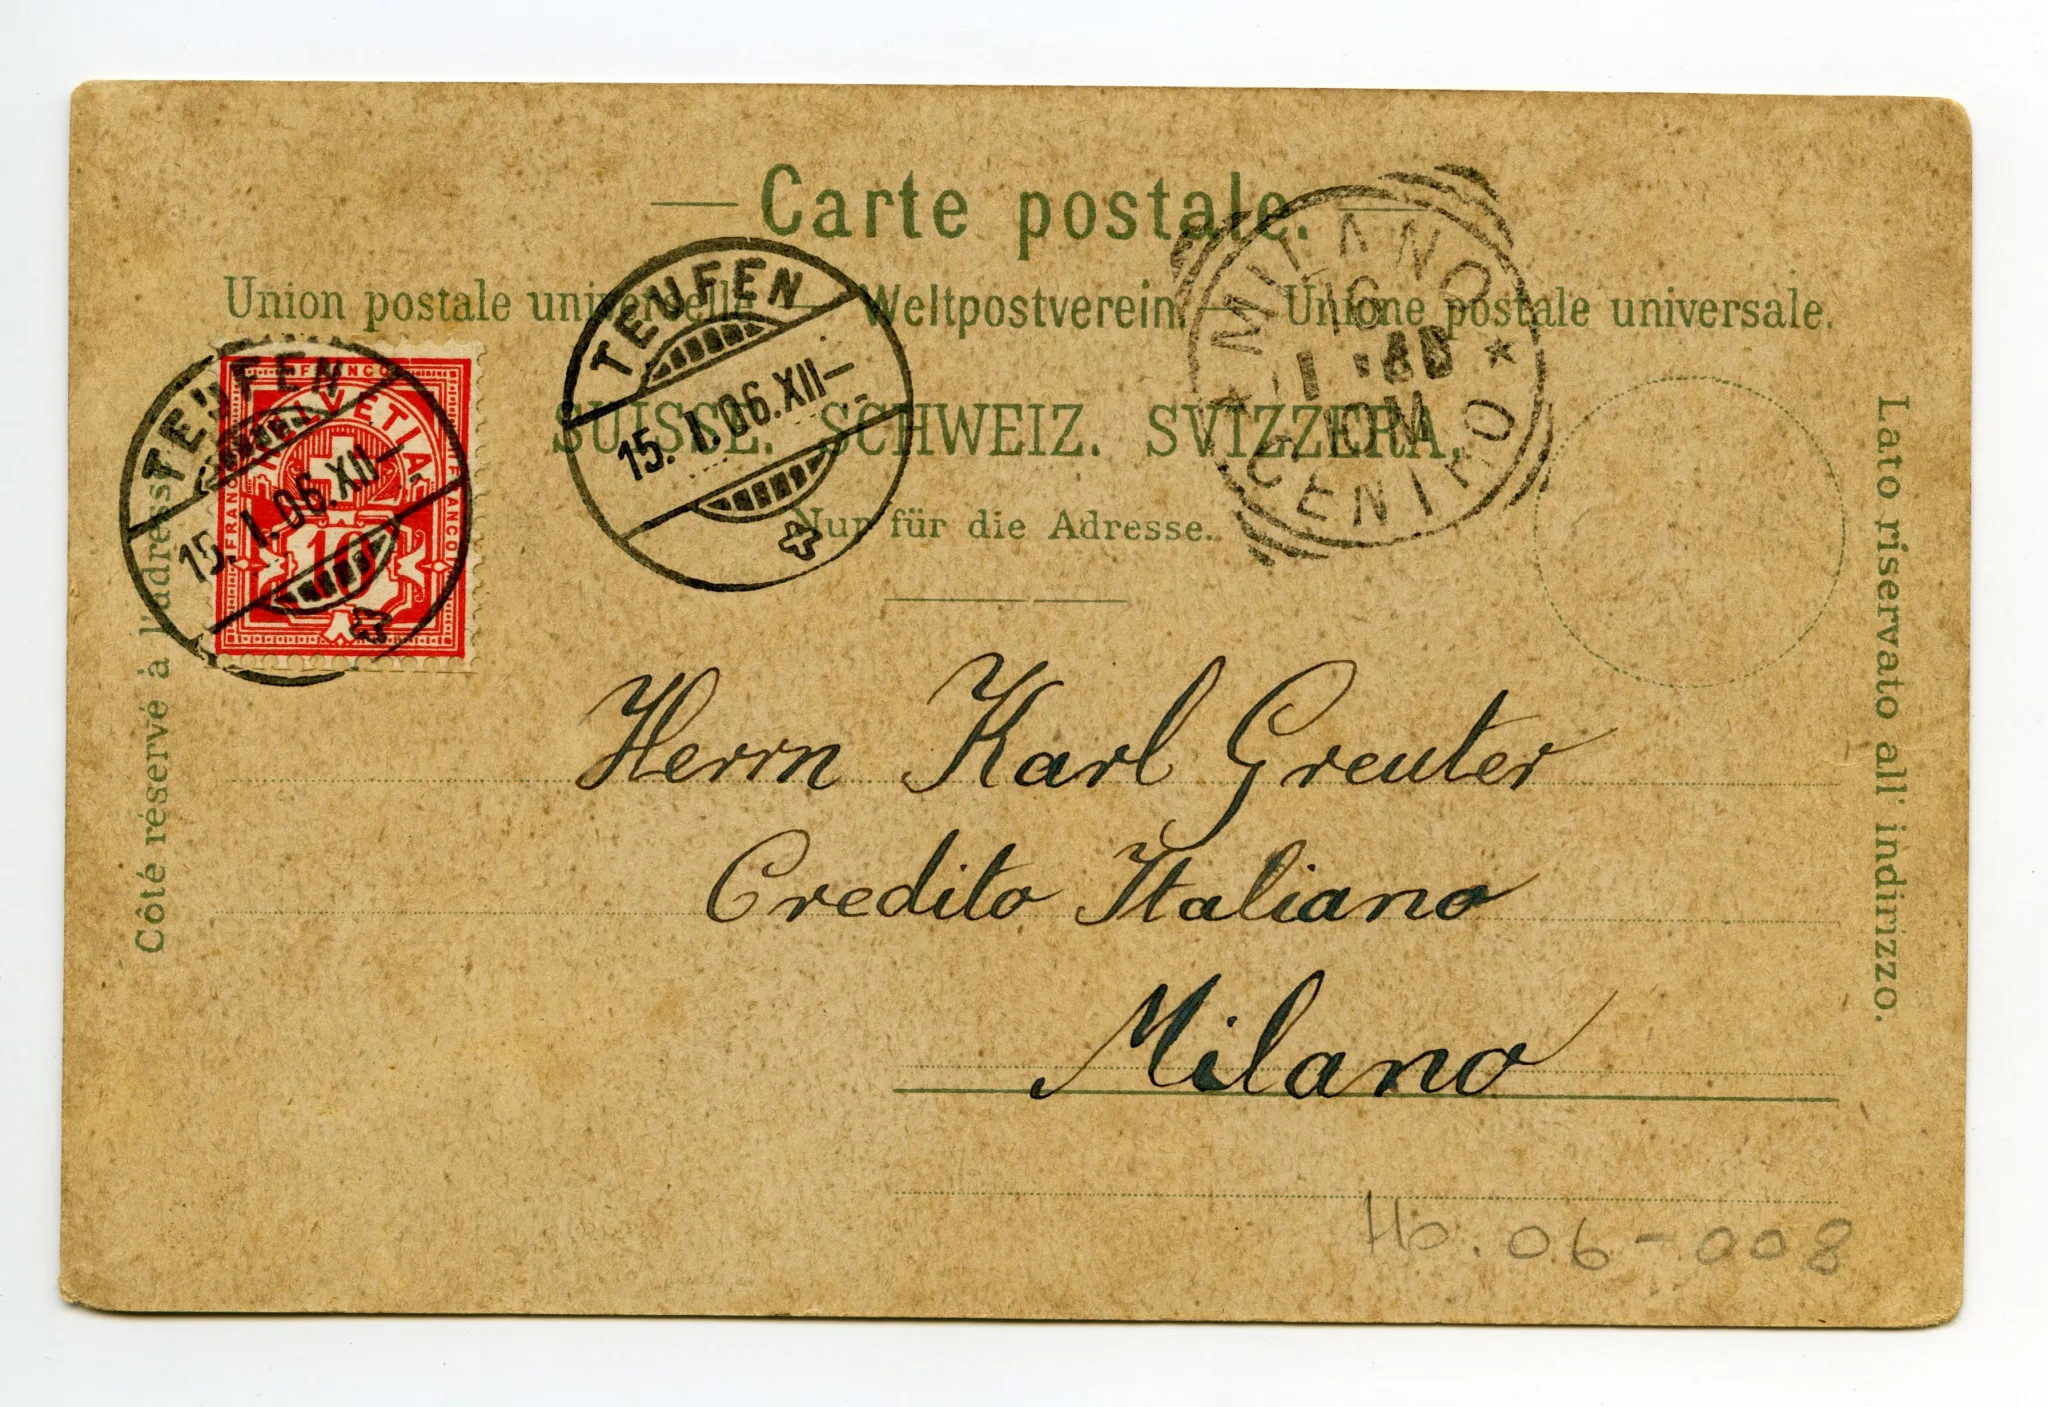 Carte postale.
Union postale universelle — Weltpostverein. — Unione postale universale.
SUISSE. SCHWEIZ. SVIZZERA.
Nur für die Adresse.
TEUFEN
15. I. 06. XII–
TEUFEN
15. I. 06. XII–
FRANCO
HELVETIA
FRANCO
FRANCO
10
MILANO
16
CENTRO
Côté réservé à l'adresse
Lato riservato all' indirizzo.
Herrn Karl Greuter
Credito Italiano
Milano
Hb. 06-008